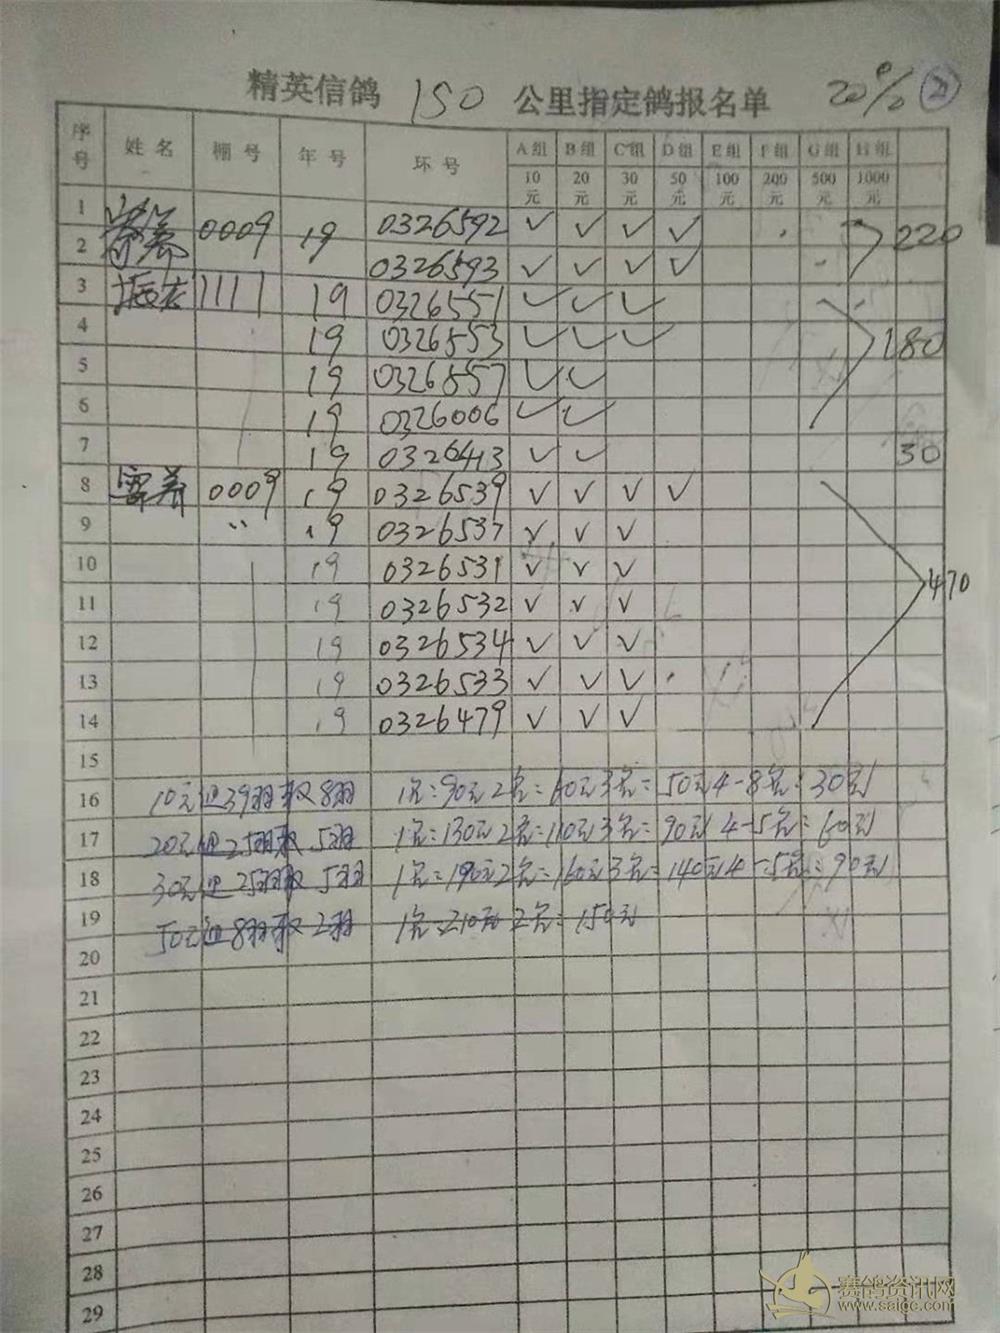 精英信鸽 150 公里指定鸽报名单 20% ②
序号 姓名 棚号 年号 环号 A组 B组 C组 D组 E组 F组 G组 H组
10元 20元 30元 50元 100元 200元 500元 1000元
1 0009 19 0326592 ✓ ✓ ✓ ✓ 220
2 0326593 ✓ ✓ ✓ ✓
3 振宏 1111 19 0326551 ✓ ✓ ✓
4 19 0326553 ✓ ✓ ✓ 180
5 19 0326557 ✓ ✓
6 19 0326006 ✓ ✓
7 19 0326413 ✓ ✓ 30
8 0009 19 0326539 ✓ ✓ ✓ ✓
9 〃 19 0326537 ✓ ✓ ✓
10 19 0326531 ✓ ✓ ✓ 470
11 19 0326532 ✓ ✓ ✓
12 19 0326534 ✓ ✓ ✓
13 19 0326533 ✓ ✓ ✓
14 19 0326479 ✓ ✓ ✓
15
16 10元组39羽取8羽 1名=90元2名=60元3名=50元4-8名=30元
17 20元组25羽取5羽 1名=130元2名=110元3名=90元4-5名=60元
18 30元组25羽取5羽 1名=190元2名=160元3名=140元4-5名=90元
19 50元组8羽取2羽 1名=210元2名=150元
20
21
22
23
24
25
26
27
28
29
赛鸽资讯网
www.saige.com